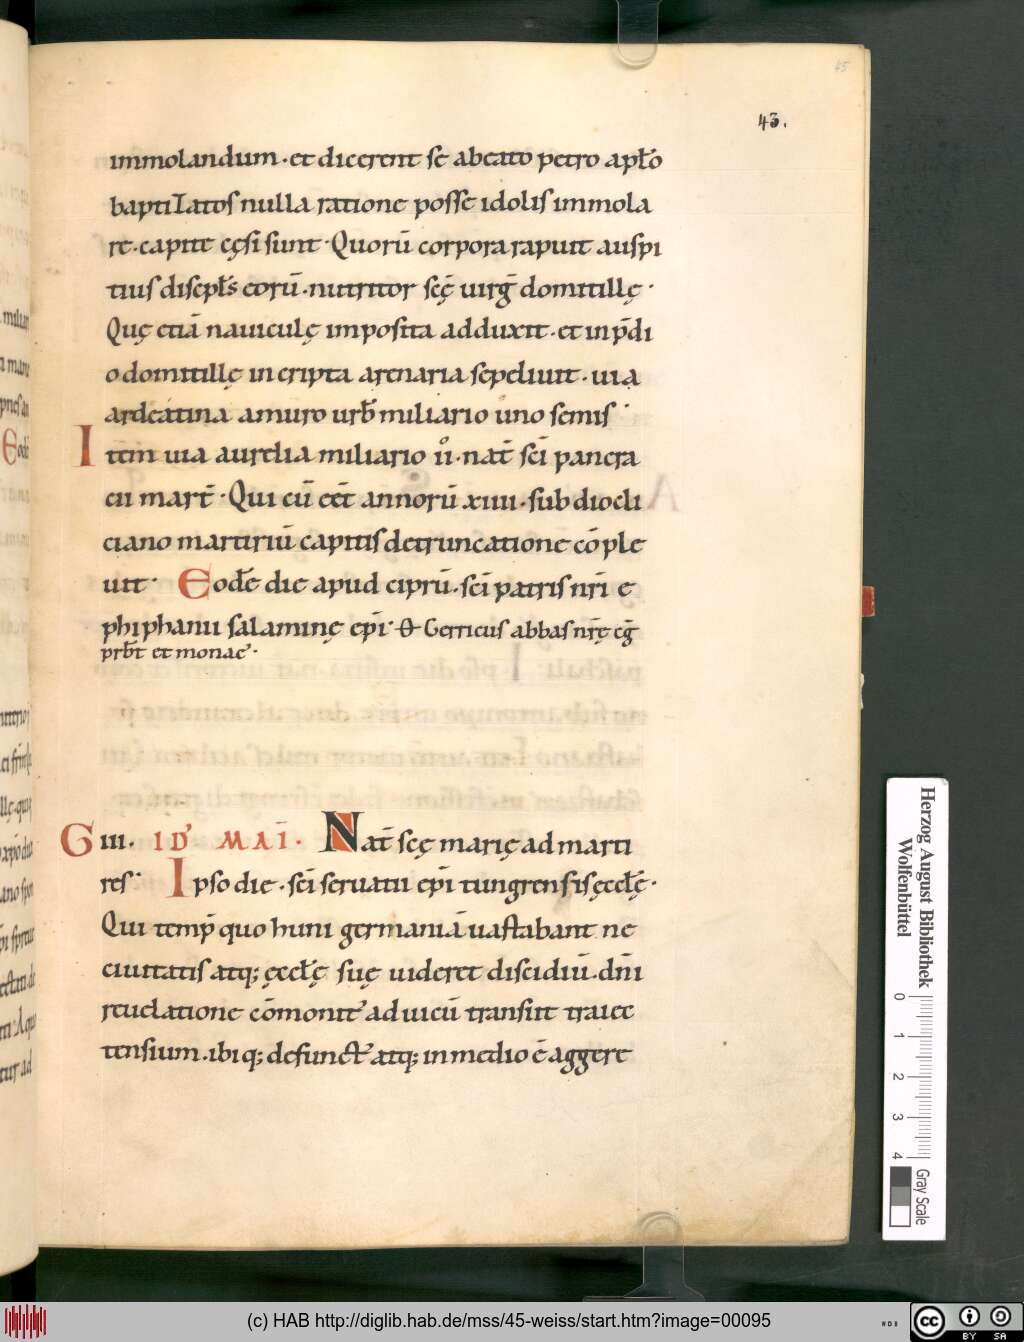 45
43.
immolandum · et dicerent se a beato petro apƚo
baptizatos nulla ratione posse idolis immola
re · capite cęsi sunt · Quorū corpora rapuit auspi
tius discipƚs eorū · nutritor scę̄ uirḡ domitillę ·
Quę etiā nauiculę imposita adduxit · et in p̄di
o domitillę in cripta arenaria sepeliuit · uia
ardeatina a muro urƀ miliario uno semis ·
Item uia aurelia miliario ii̊ · nat̄ sc̄i pancra
cii mart̄ · Qui cū eēt annorū xiiii · sub diocli
ciano martiriū capitis detruncatione cōple
uit · Eodē die apud ciprū · sc̄i patris nr̄i e
phiphanii salaminę ep̄i ·
prƀt et monac̄ ·
G iii. ID' MAĪ. Nat̄ scę̄ marię ad marti
res · Ipso die · sc̄i seruatii ep̄i tungrensis ęccƚę ·
Qui temp̄ quo huni germaniā uastabant ne
ciuitatis atq; ęccƚę suę uideret discidiū · dn̄i
reuelatione cōmonit' ad uicū transiit traiec
tensium · ibiq; defunct' atq; in medio ē aggere
Herzog August Bibliothek
Wolfenbüttel
0 1 2 3 4
Gray Scale
(c) HAB http://diglib.hab.de/mss/45-weiss/start.htm?image=00095
WDB
cc BY SA